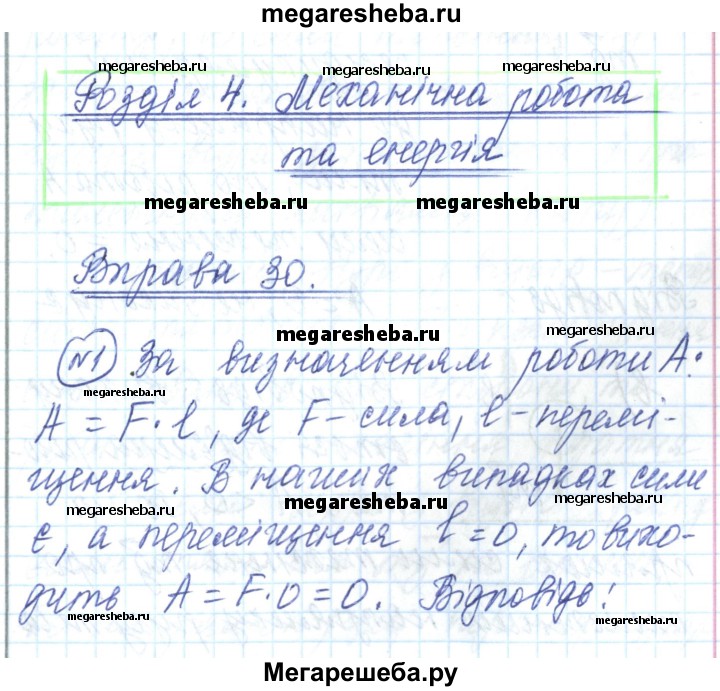 megaresheba.ru
megaresheba.ru
megaresheba.ru
megaresheba.ru
megaresheba.ru
Розділ 4. Механічна робота
та енергія
megaresheba.ru
megaresheba.ru
Вправа 30.
megaresheba.ru
megaresheba.ru
№1 За визначенням роботи А:
megaresheba.ru
megaresheba.ru
A = F · l, де F – сила, l – перемі-
щення. В наших випадках сили
megaresheba.ru
megaresheba.ru
megaresheba.ru
є, а переміщення l = 0, то вихо-
дить A = F · 0 = 0. Відповідь!
megaresheba.ru
megaresheba.ru
Мегарешеба.ру